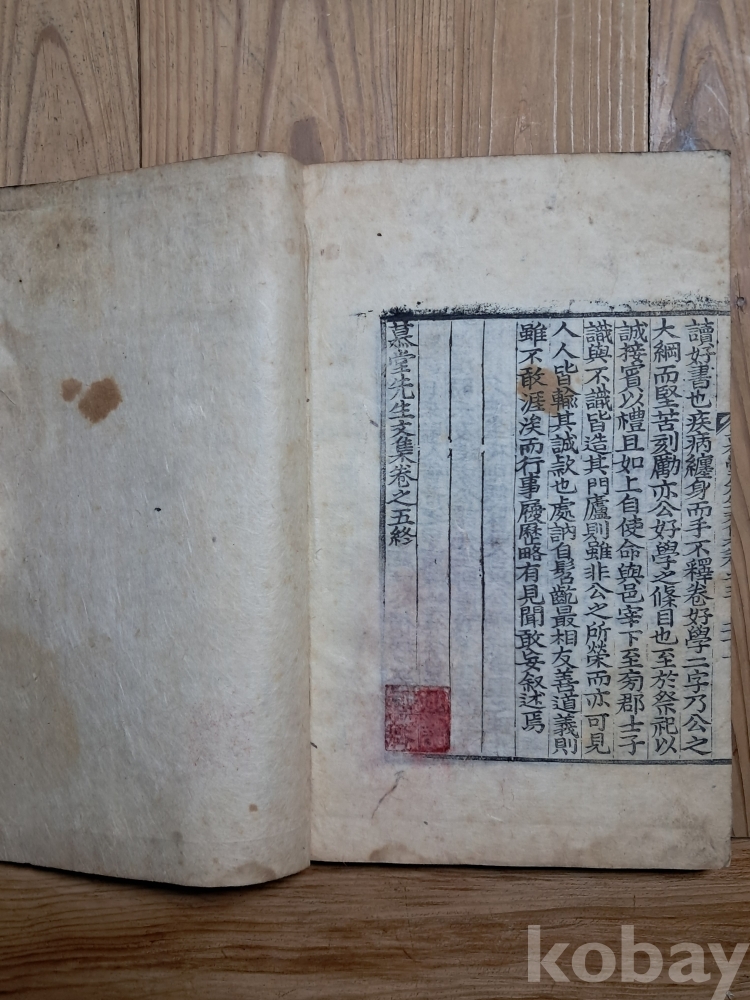 讀好書也疾病纏身而手不釋卷好學二字乃公之
大綱而堅苦刻勵亦公好學之條目也至於祭祀以
誠接賓以禮且如上自使命與邑宰下至旁郡士子
識與不識皆造其門廬則雖非公之所榮而亦可見
人人皆輸其誠款也處訥自髫齔最相友善道義則
雖不敢涯涘而行事履歷略有見聞敢妄叙述焉
慕堂先生文集卷之五終
kobay